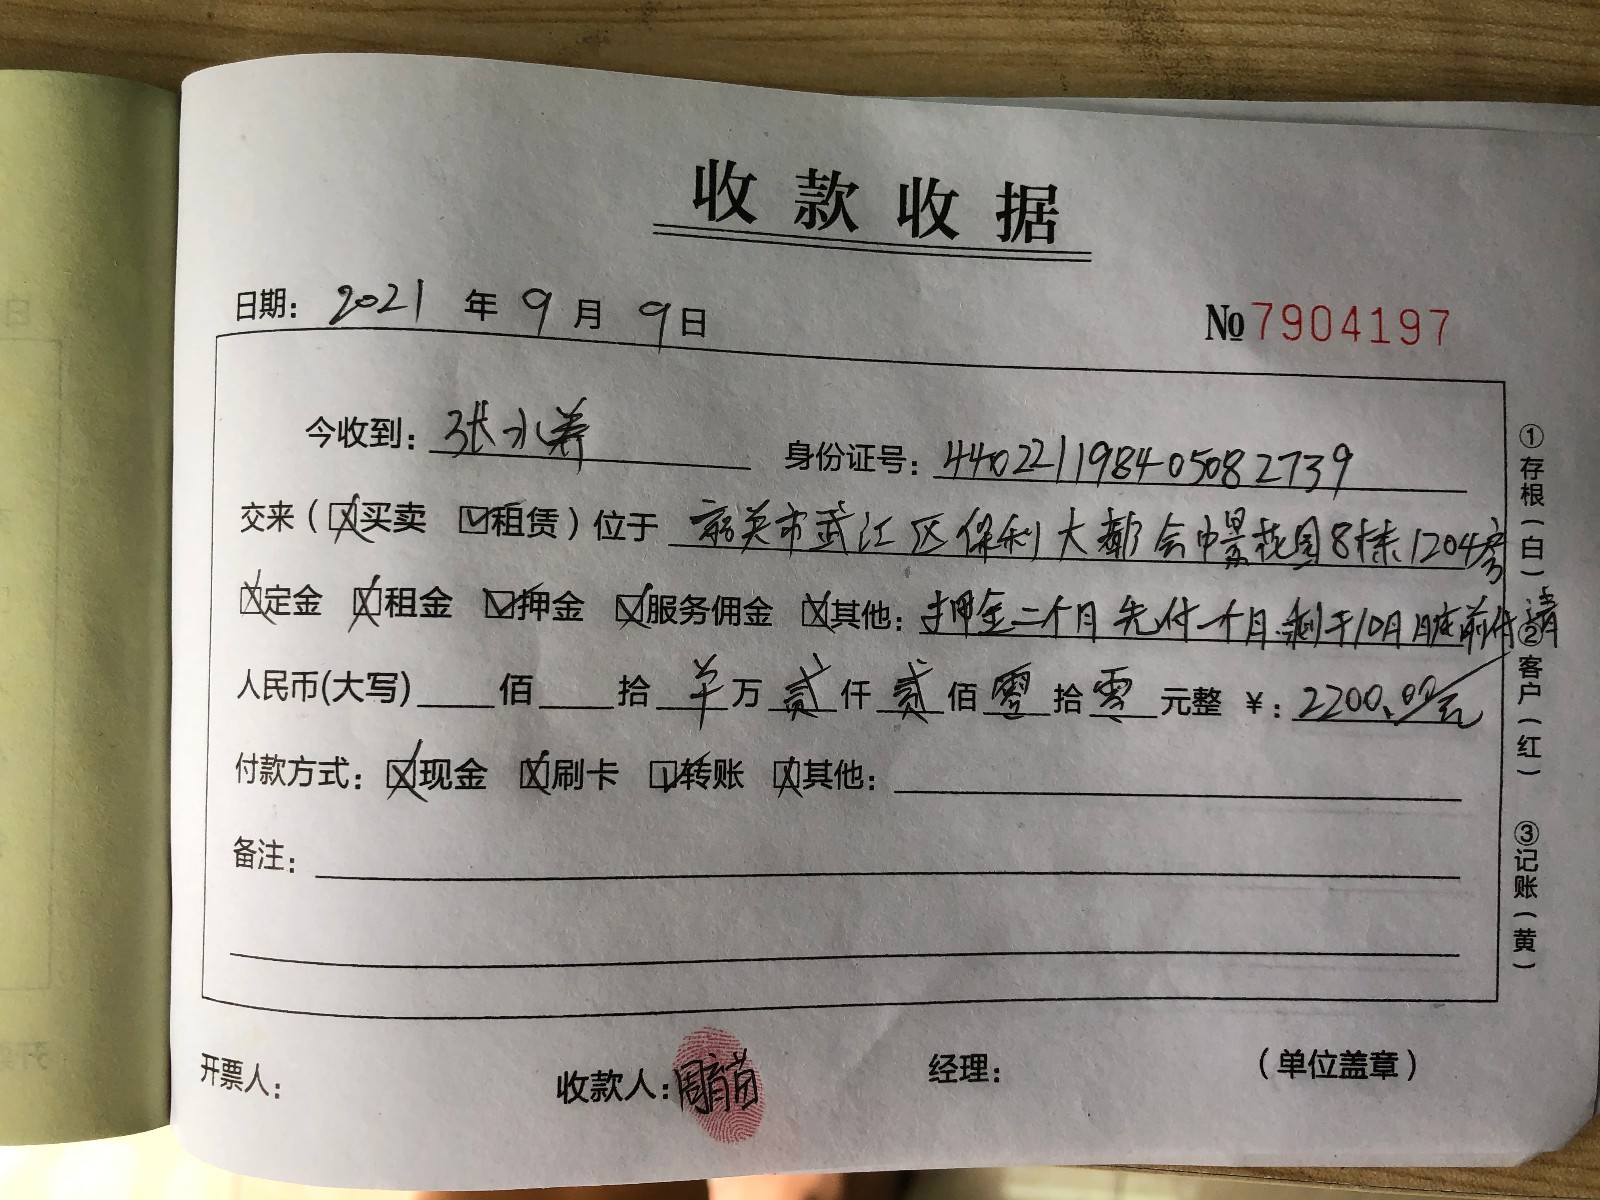 收款收据
日期：2021年9月9日 №7904197
今收到：张水养 身份证号：440221198405082739
交来（☒买卖 ☑租赁）位于 韶关市武江区保利大都会中景花园8栋1204房
☒定金 ☒租金 ☑押金 ☒服务佣金 ☒其他：押金二个月先付一个月.剩于10月月底前付清
人民币(大写) 佰 拾 单万贰仟贰佰零拾零元整 ￥：2200.00元
付款方式：☒现金 ☒刷卡 ☑转账 ☒其他：
备注：
开票人： 收款人：周育苗 经理： （单位盖章）
①存根(白) ②客户(红) ③记账(黄)